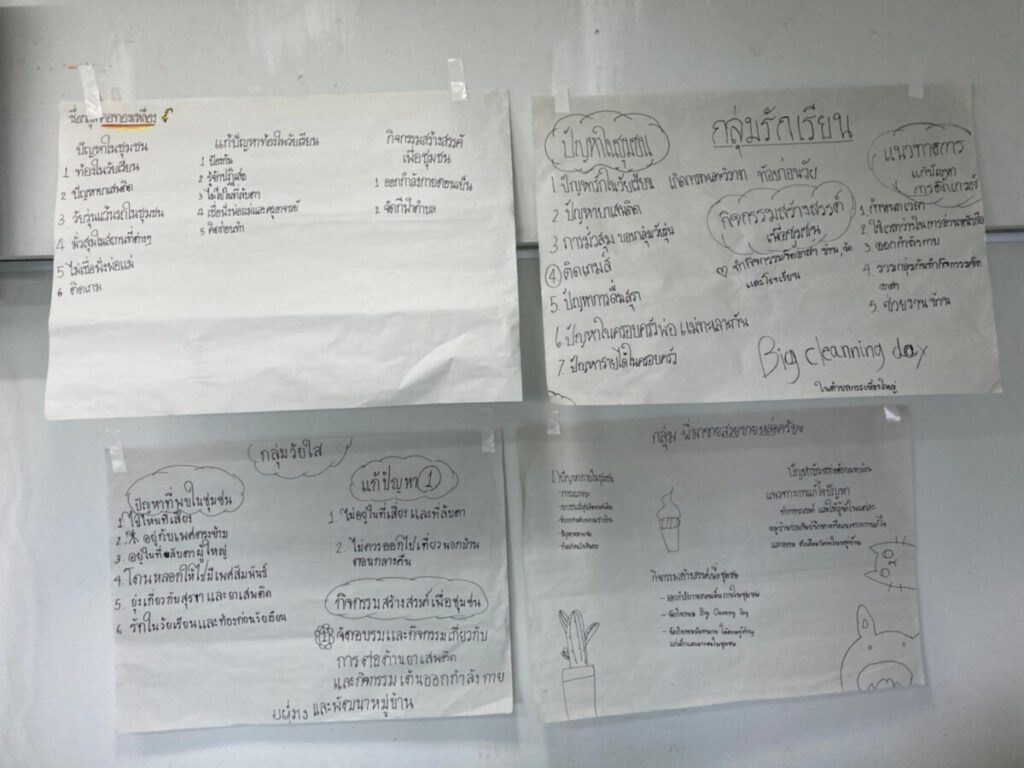 ชื่อกลุ่มคอทองเหลือง
ปัญหาในชุมชน
1 ท้องในวัยเรียน
2 ปัญหายาเสพติด
3 วัยรุ่นแว้นรถในชุมชน
4 มั่วสุมในสถานที่ต่างๆ
5 ไม่เชื่อฟังพ่อแม่
6 ติดเกม
แก้ปัญหาท้องในวัยเรียน
1 ป้องกัน
2 รู้จักปฏิเสธ
3 ไม่ไปในที่ลับตา
4 เชื่อฟังพ่อแม่และครูอาจารย์
5 คิดก่อนทำ
กิจกรรมสร้างสรรค์
เพื่อชุมชน
1 ออกกำลังกายตอนเย็น
2 จัดกีฬาตำบล
กลุ่มรักเรียน
ปัญหาในชุมชน
1. ปัญหารักในวัยเรียน เกิดการทะเลาะวิวาท ท้องก่อนวัย
2. ปัญหายาเสพติด
3. การมั่วสุม ของกลุ่มวัยรุ่น
4 ติดเกมส์
5. ปัญหาการดื่มสุรา
6. ปัญหาในครอบครัวพ่อ แม่ทะเลาะกัน
7. ปัญหารายได้ในครอบครัว
กิจกรรมสร้างสรรค์
เพื่อชุมชน
จัดกิจกรรมจิตอาสา บ้าน, วัด
และโรงเรียน
Big cleanning day
แนวทางการ
แก้ปัญหา
การติดเกมส์
1. กำหนดเวลา
2. ใช้เวลาว่างในการอ่านหนังสือ
3. ออกกำลังกาย
4. รวมกลุ่มกันทำกิจกรรมจิต
อาสา
5. ช่วยงานบ้าน
กลุ่มวัยใส
ปัญหาที่พบในชุมชน
1. ใช้โทนที่เสี่ยง
2. อยู่กับเพศตรงข้าม
3. อยู่ในที่ลับตาผู้ใหญ่
4. โดนหลอกให้ไปมีเพศสัมพันธ์
5. ยุ่งเกี่ยวกับสุรา และยาเสพติด
6 รักในวัยเรียนและท้องก่อนวัยเรียน
แก้ปัญหา 1
1. ไม่อยู่ในที่เสี่ยง และที่ลับตา
2. ไม่ควรออกไปเที่ยวนอกบ้าน
ตอนกลางคืน
กิจกรรมสร้างสรรค์เพื่อชุมชน
1 จัดอบรมและกิจกรรมเกี่ยวกับ
การต่อต้านยาเสพติด
และกิจกรรมเต้นออกกำลังกาย
และพัฒนาหมู่บ้าน
กลุ่ม
1 ปัญหาภายในชุมชน
แนวทางการแก้ไขปัญหา
กิจกรรมสร้างสรรค์เพื่อชุมชน
- ออกกำลังกายตอนเย็นภายในชุมชน
- จัดกิจกรรม Big Cleaning Day